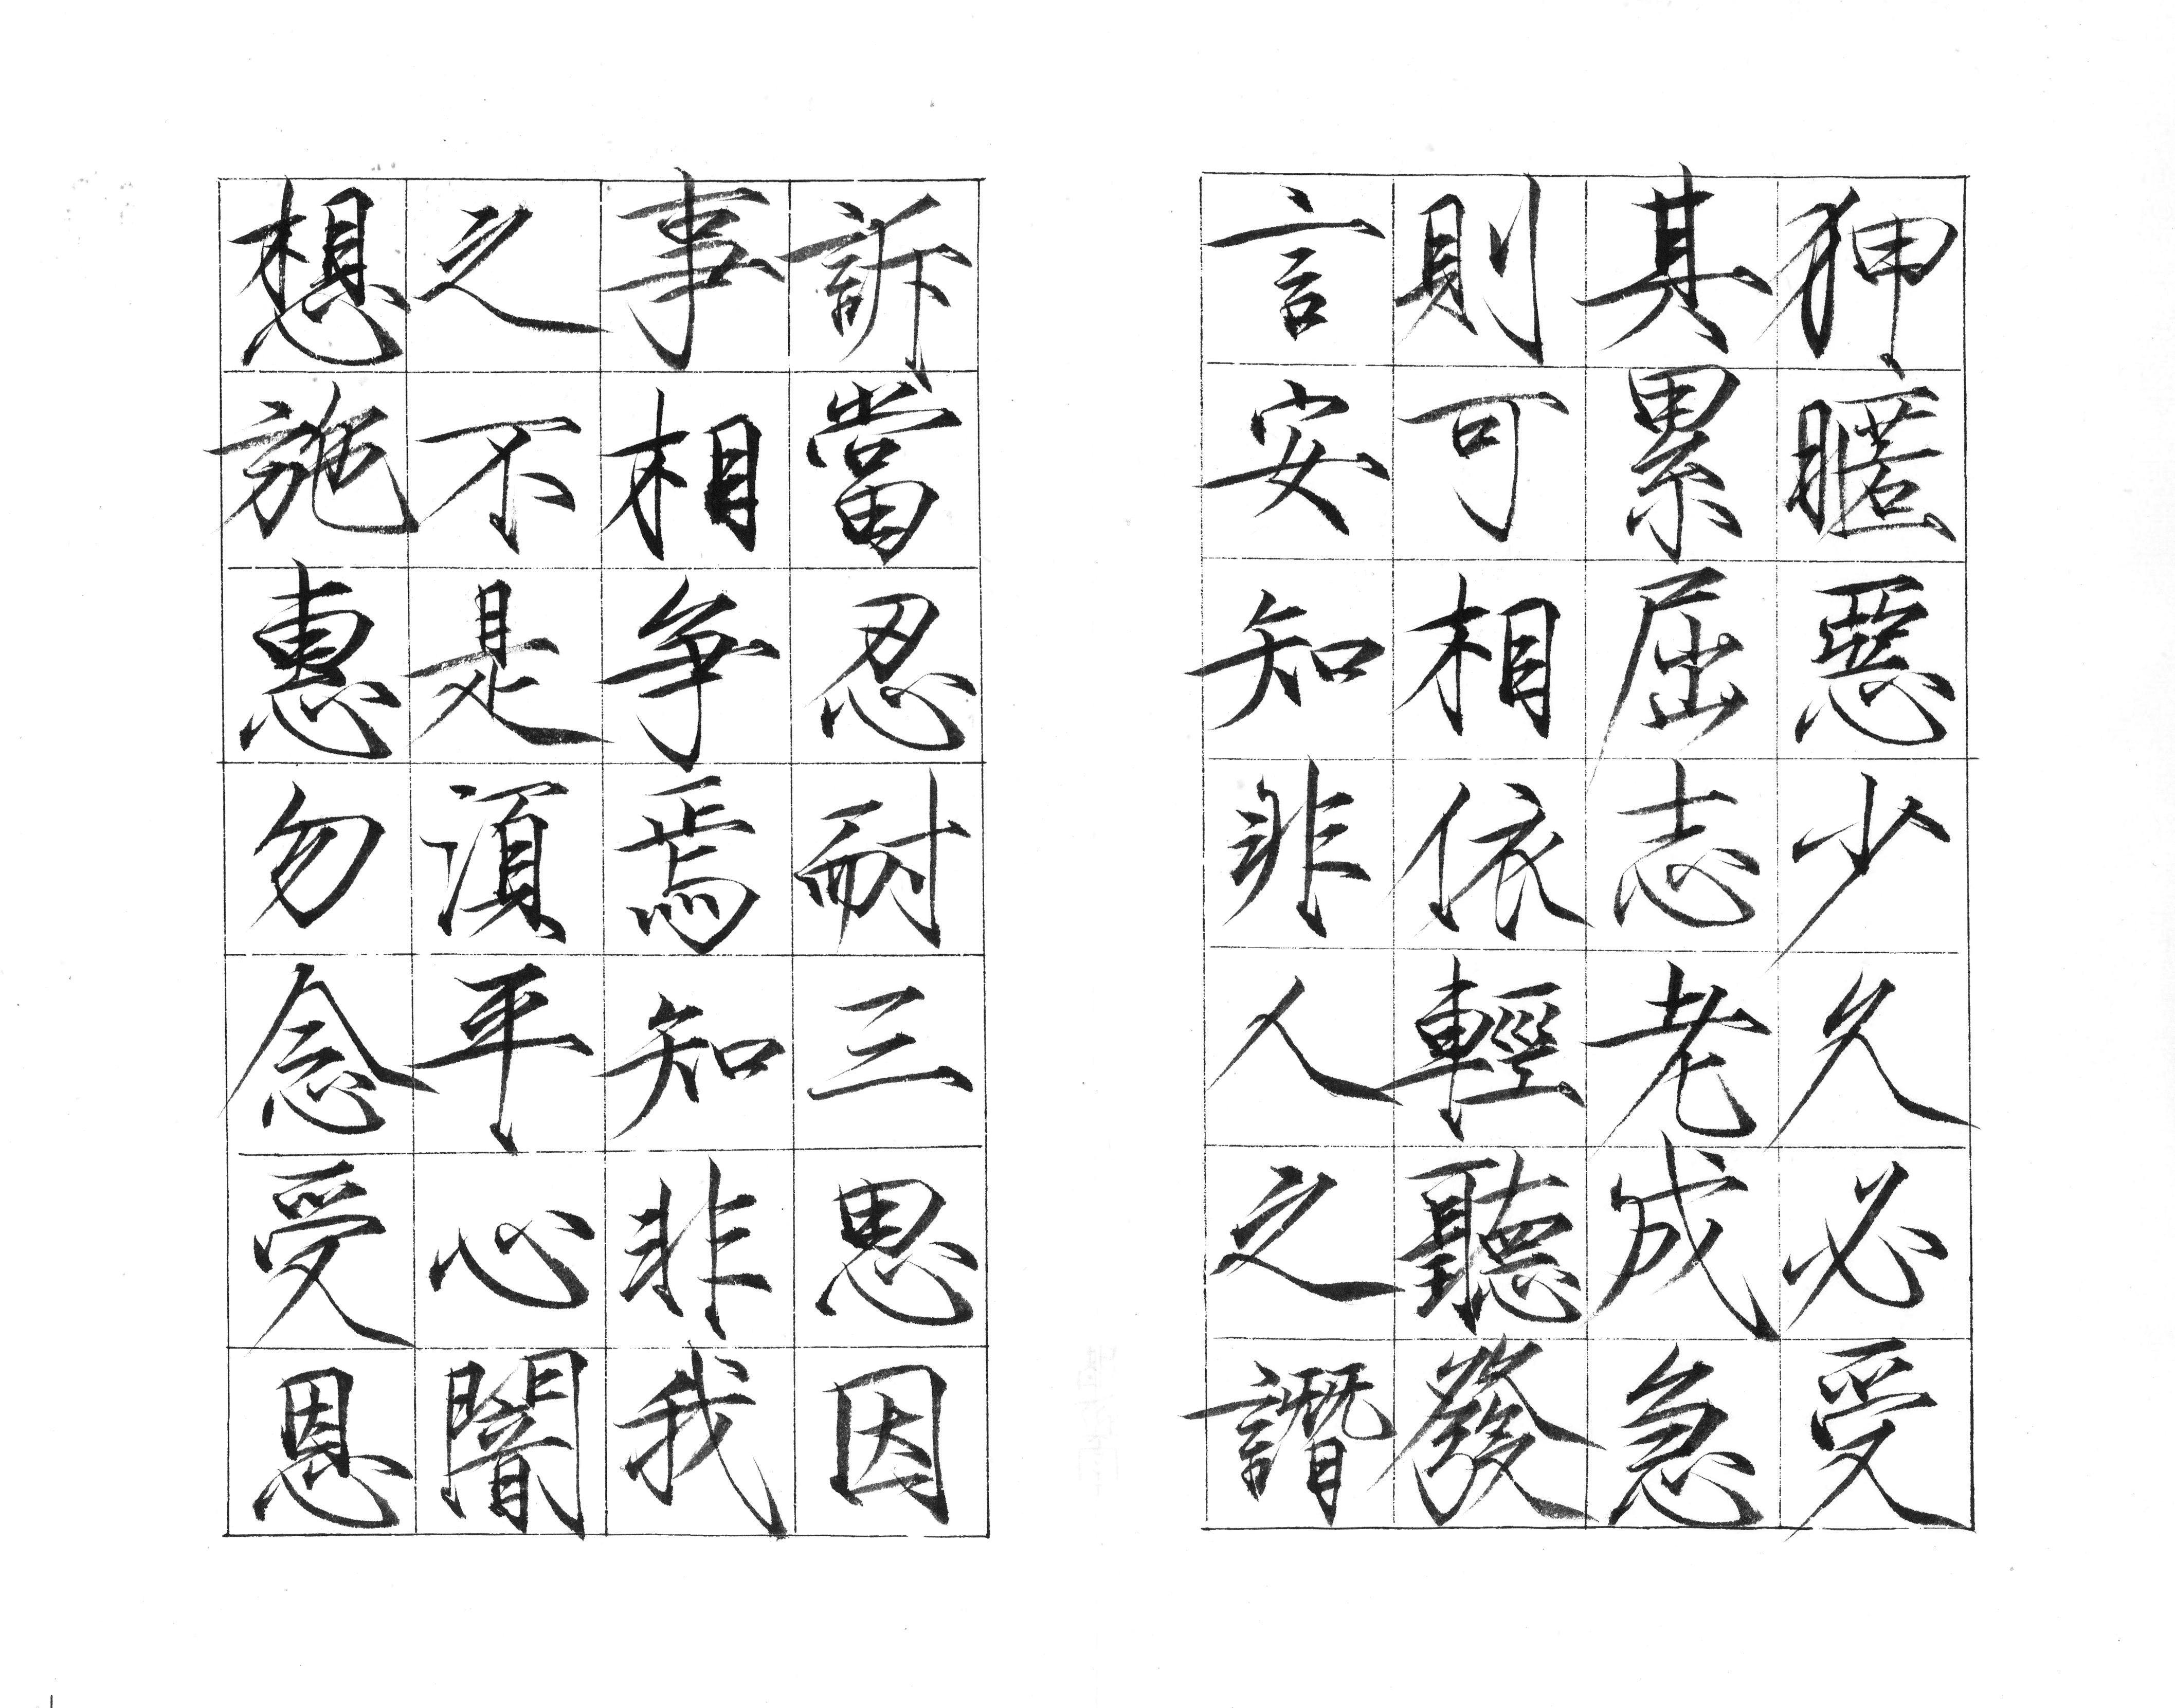 狎暱惡少久必受
其累屈志老成急
則可相依輕聽發
言安知非人之譖
訴當忍耐三思因
事相爭焉知非我
之不是須平心闇
想施惠勿念受恩